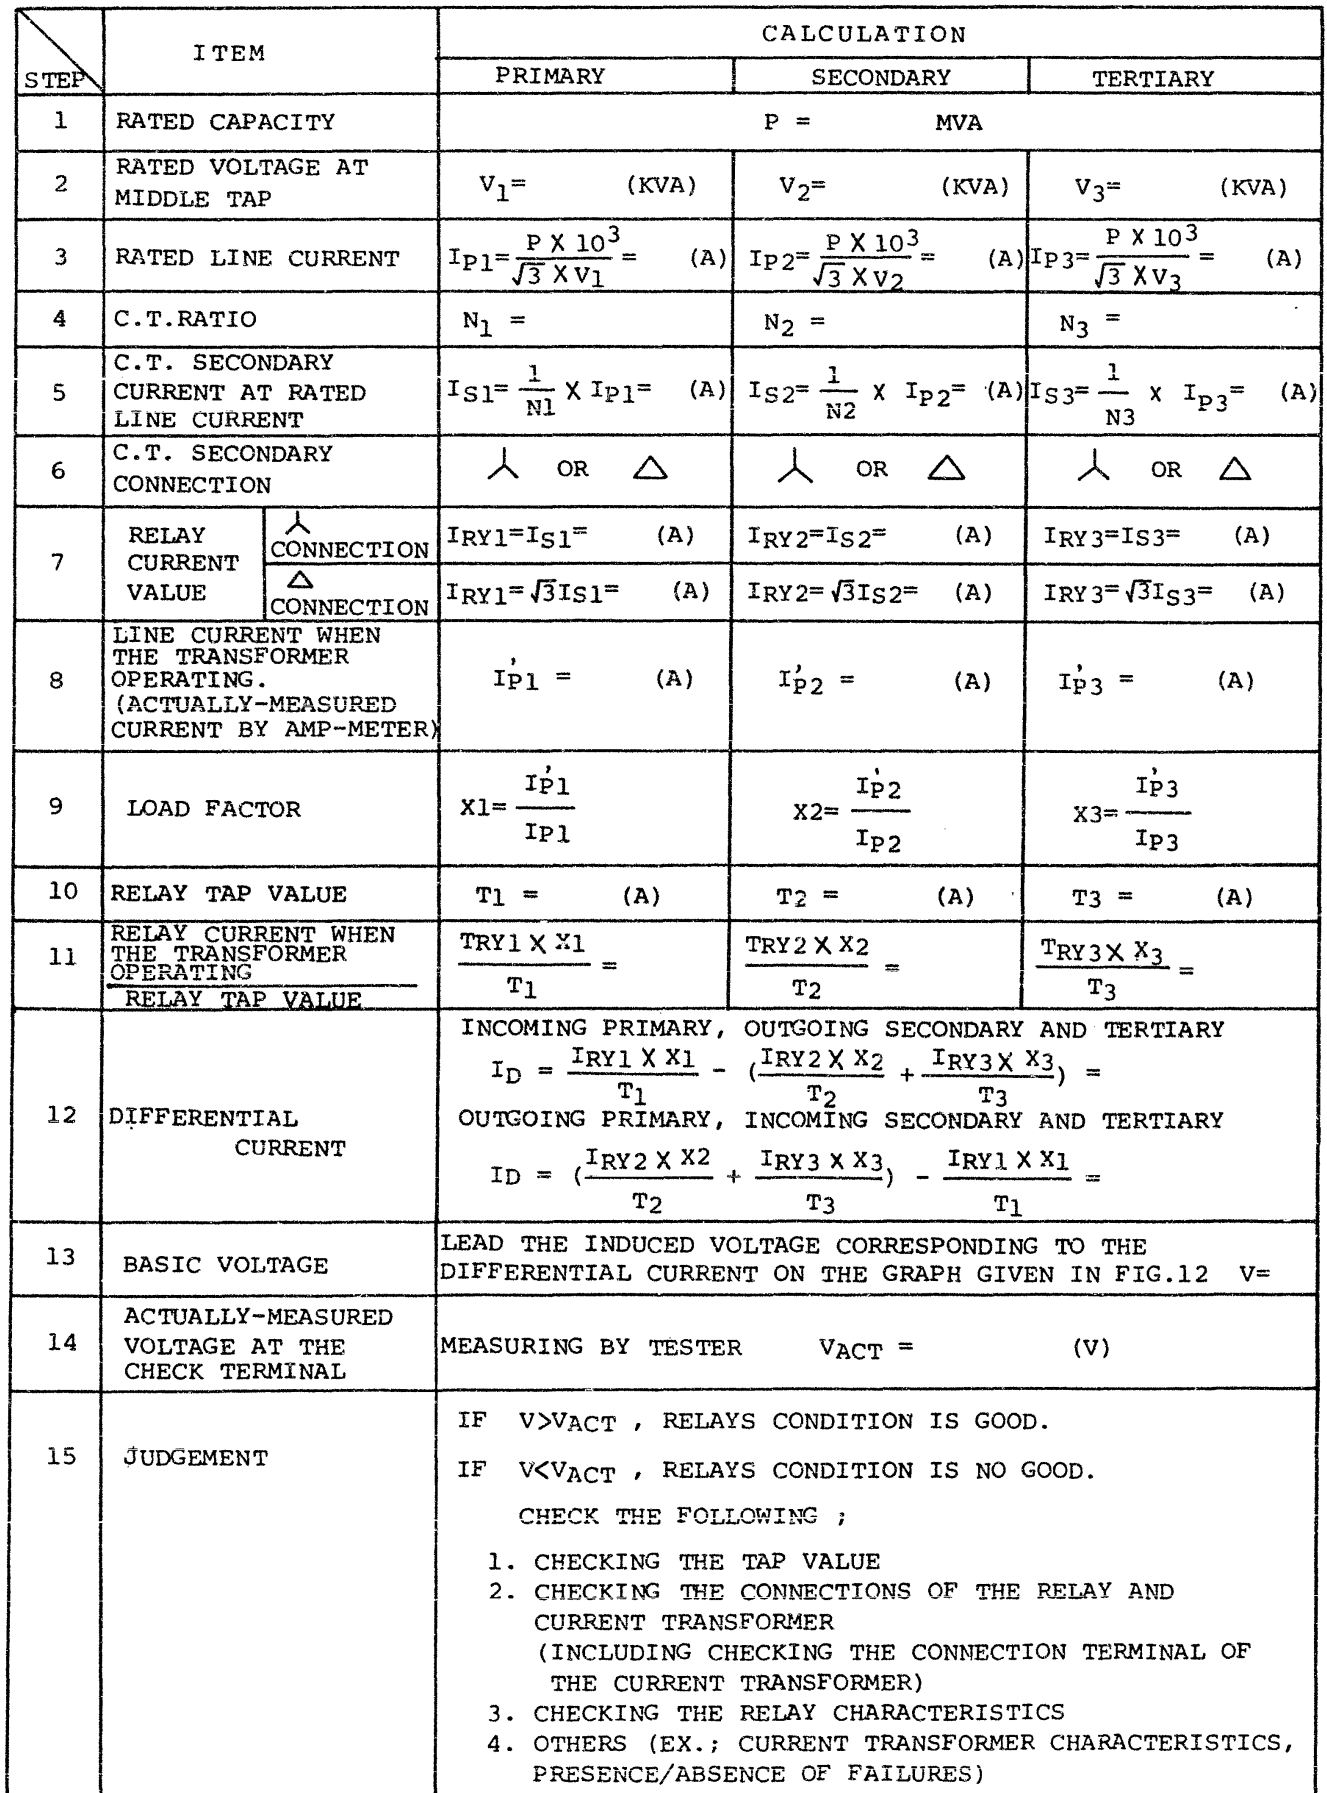 STEP ITEM CALCULATION
PRIMARY SECONDARY TERTIARY
1 RATED CAPACITY P = MVA
2 RATED VOLTAGE AT MIDDLE TAP V1= (KVA) V2= (KVA) V3= (KVA)
3 RATED LINE CURRENT IP1= P X 10^3 / √3 X V1 = (A) IP2= P X 10^3 / √3 X V2 = (A) IP3= P X 10^3 / √3 X V3 = (A)
4 C.T.RATIO N1 = N2 = N3 =
5 C.T. SECONDARY CURRENT AT RATED LINE CURRENT IS1= 1/N1 X IP1= (A) IS2= 1/N2 X IP2= (A) IS3= 1/N3 X IP3= (A)
6 C.T. SECONDARY CONNECTION 人 OR △ 人 OR △ 人 OR △
7 RELAY CURRENT VALUE
人 CONNECTION IRY1=IS1= (A) IRY2=IS2= (A) IRY3=IS3= (A)
△ CONNECTION IRY1=√3IS1= (A) IRY2=√3IS2= (A) IRY3=√3IS3= (A)
8 LINE CURRENT WHEN THE TRANSFORMER OPERATING. (ACTUALLY-MEASURED CURRENT BY AMP-METER) I'P1 = (A) I'P2 = (A) I'P3 = (A)
9 LOAD FACTOR X1= I'P1 / IP1 X2= I'P2 / IP2 X3= I'P3 / IP3
10 RELAY TAP VALUE T1 = (A) T2 = (A) T3 = (A)
11 RELAY CURRENT WHEN THE TRANSFORMER OPERATING / RELAY TAP VALUE TRY1 X X1 / T1 = TRY2 X X2 / T2 = TRY3 X X3 / T3 =
12 DIFFERENTIAL CURRENT
INCOMING PRIMARY, OUTGOING SECONDARY AND TERTIARY
ID = IRY1 X X1 / T1 - (IRY2 X X2 / T2 + IRY3 X X3 / T3) =
OUTGOING PRIMARY, INCOMING SECONDARY AND TERTIARY
ID = (IRY2 X X2 / T2 + IRY3 X X3 / T3) - IRY1 X X1 / T1 =
13 BASIC VOLTAGE
LEAD THE INDUCED VOLTAGE CORRESPONDING TO THE
DIFFERENTIAL CURRENT ON THE GRAPH GIVEN IN FIG.12 V=
14 ACTUALLY-MEASURED VOLTAGE AT THE CHECK TERMINAL MEASURING BY TESTER VACT = (V)
15 JUDGEMENT
IF V>VACT , RELAYS CONDITION IS GOOD.
IF V<VACT , RELAYS CONDITION IS NO GOOD.
CHECK THE FOLLOWING ;
1. CHECKING THE TAP VALUE
2. CHECKING THE CONNECTIONS OF THE RELAY AND
CURRENT TRANSFORMER
(INCLUDING CHECKING THE CONNECTION TERMINAL OF
THE CURRENT TRANSFORMER)
3. CHECKING THE RELAY CHARACTERISTICS
4. OTHERS (EX.; CURRENT TRANSFORMER CHARACTERISTICS,
PRESENCE/ABSENCE OF FAILURES)